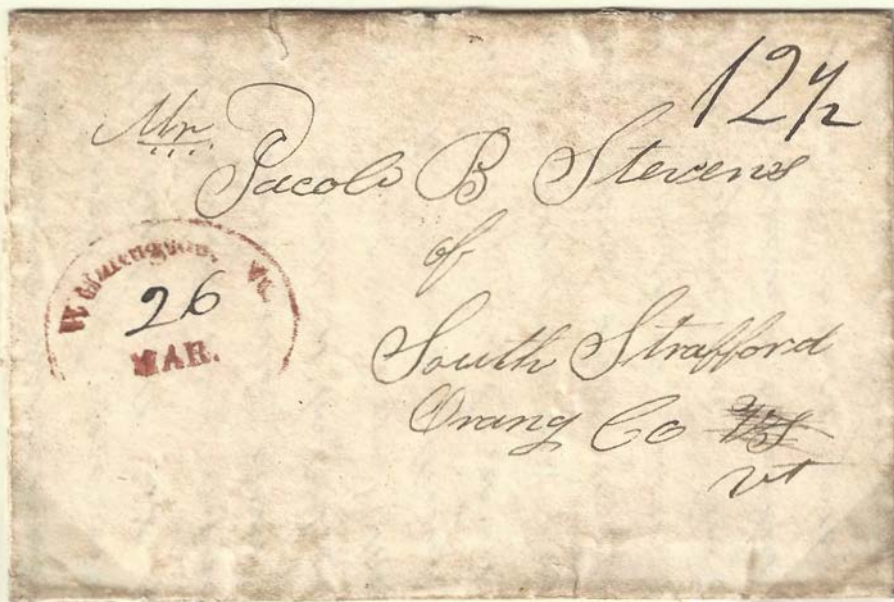 12½
Mr
Jacob B Stevens
of
South Strafford
Orang Co
vt
Vt.
26
MAR.